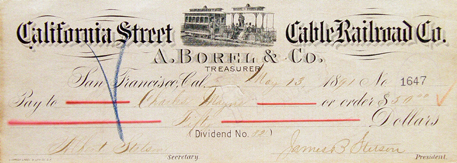 California Street Cable Railroad Co.
A. BOREL & CO.
TREASURER
San Francisco, Cal. May 13, 189 No 1647
Pay to Charles Mayne or order $50.00
Fifty Dollars
(Dividend No. )
Secretary. James B. Stetson President.